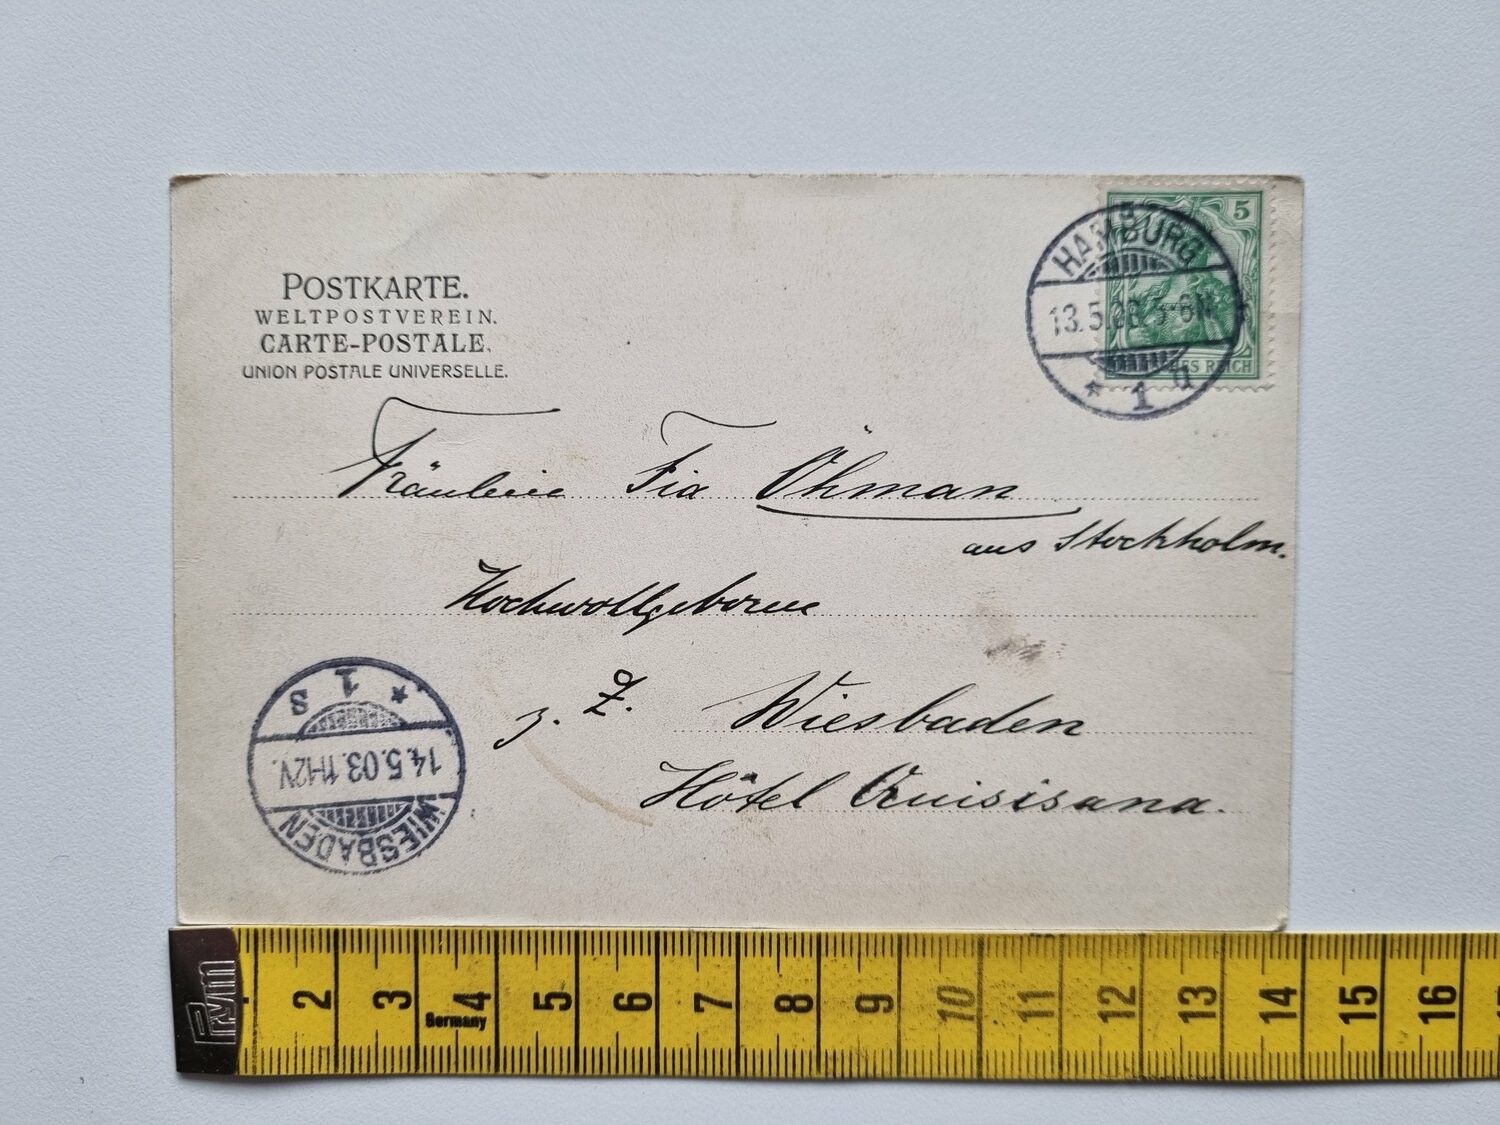 POSTKARTE.
WELTPOSTVEREIN.
CARTE-POSTALE.
UNION POSTALE UNIVERSELLE.
5
HAMBURG
13.5.03. 5-6N
* 1 u
REICH
Fräulein Fia Öhman
aus Stockholm.
Hochwollgeborene
z. Z. Wiesbaden
Hôtel Quisisana.
WIESBADEN
14.5.03. 11-12V.
* 1 s
Prym
2 3 4 5 6 7 8 9 10 11 12 13 14 15 16
Germany